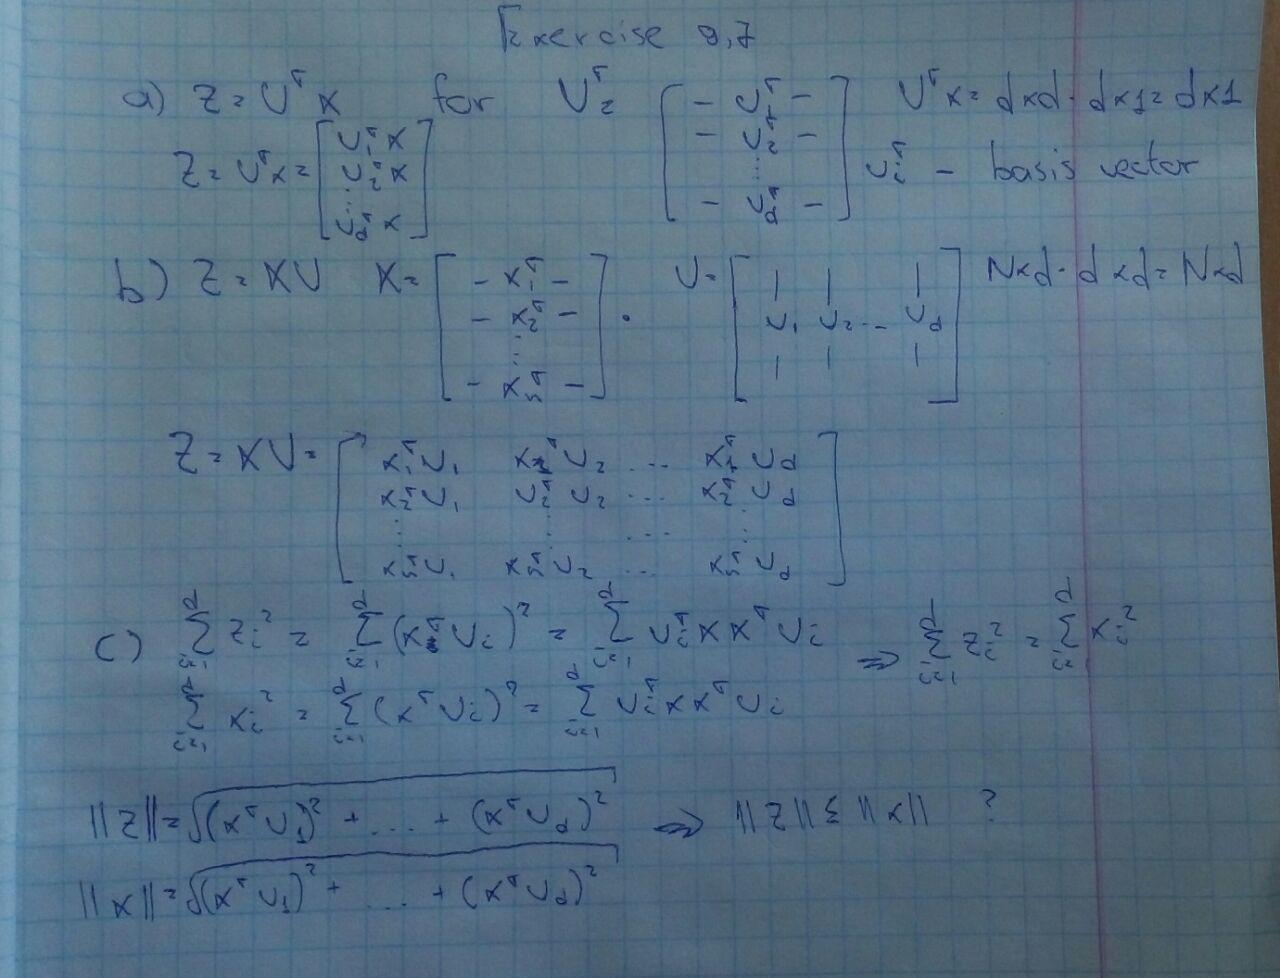 Exercise 9,7
a) Z = U^T X for U^T = [ - U_1^T - U^T X = d×d · d×1 = d×1
- U_2^T -
...
- U_d^T - ] U_i^T - basis vector
Z = U^T X = [ U_1^T X
U_2^T X
...
U_d^T X ]
b) Z = XU X = [ - X_1^T -
- X_2^T -
...
- X_n^T - ] · U = [ | | |
U_1 U_2 ... U_d
| | | ] N×d · d×d = N×d
Z = XU = [ X_1^T U_1 X_1^T U_2 ... X_1^T U_d
X_2^T U_1 U_2^T U_2 ... X_2^T U_d
⋮ ⋮ ... ⋮
X_n^T U_1 X_n^T U_2 ... X_n^T U_d ]
c) Σ_{i=1}^d Z_i^2 = Σ_{i=1}^d (X^T U_i)^2 = Σ_{i=1}^d U_i^T X X^T U_i ⇒ Σ_{i=1}^d Z_i^2 = Σ_{i=1}^d X_i^2
Σ_{i=1}^d X_i^2 = Σ_{i=1}^d (X^T U_i)^2 = Σ_{i=1}^d U_i^T X X^T U_i
||Z|| = √((X^T U_1)^2 + ... + (X^T U_d)^2) ⇒ ||Z|| ≤ ||X|| ?
||X|| = √((X^T U_1)^2 + ... + (X^T U_d)^2)